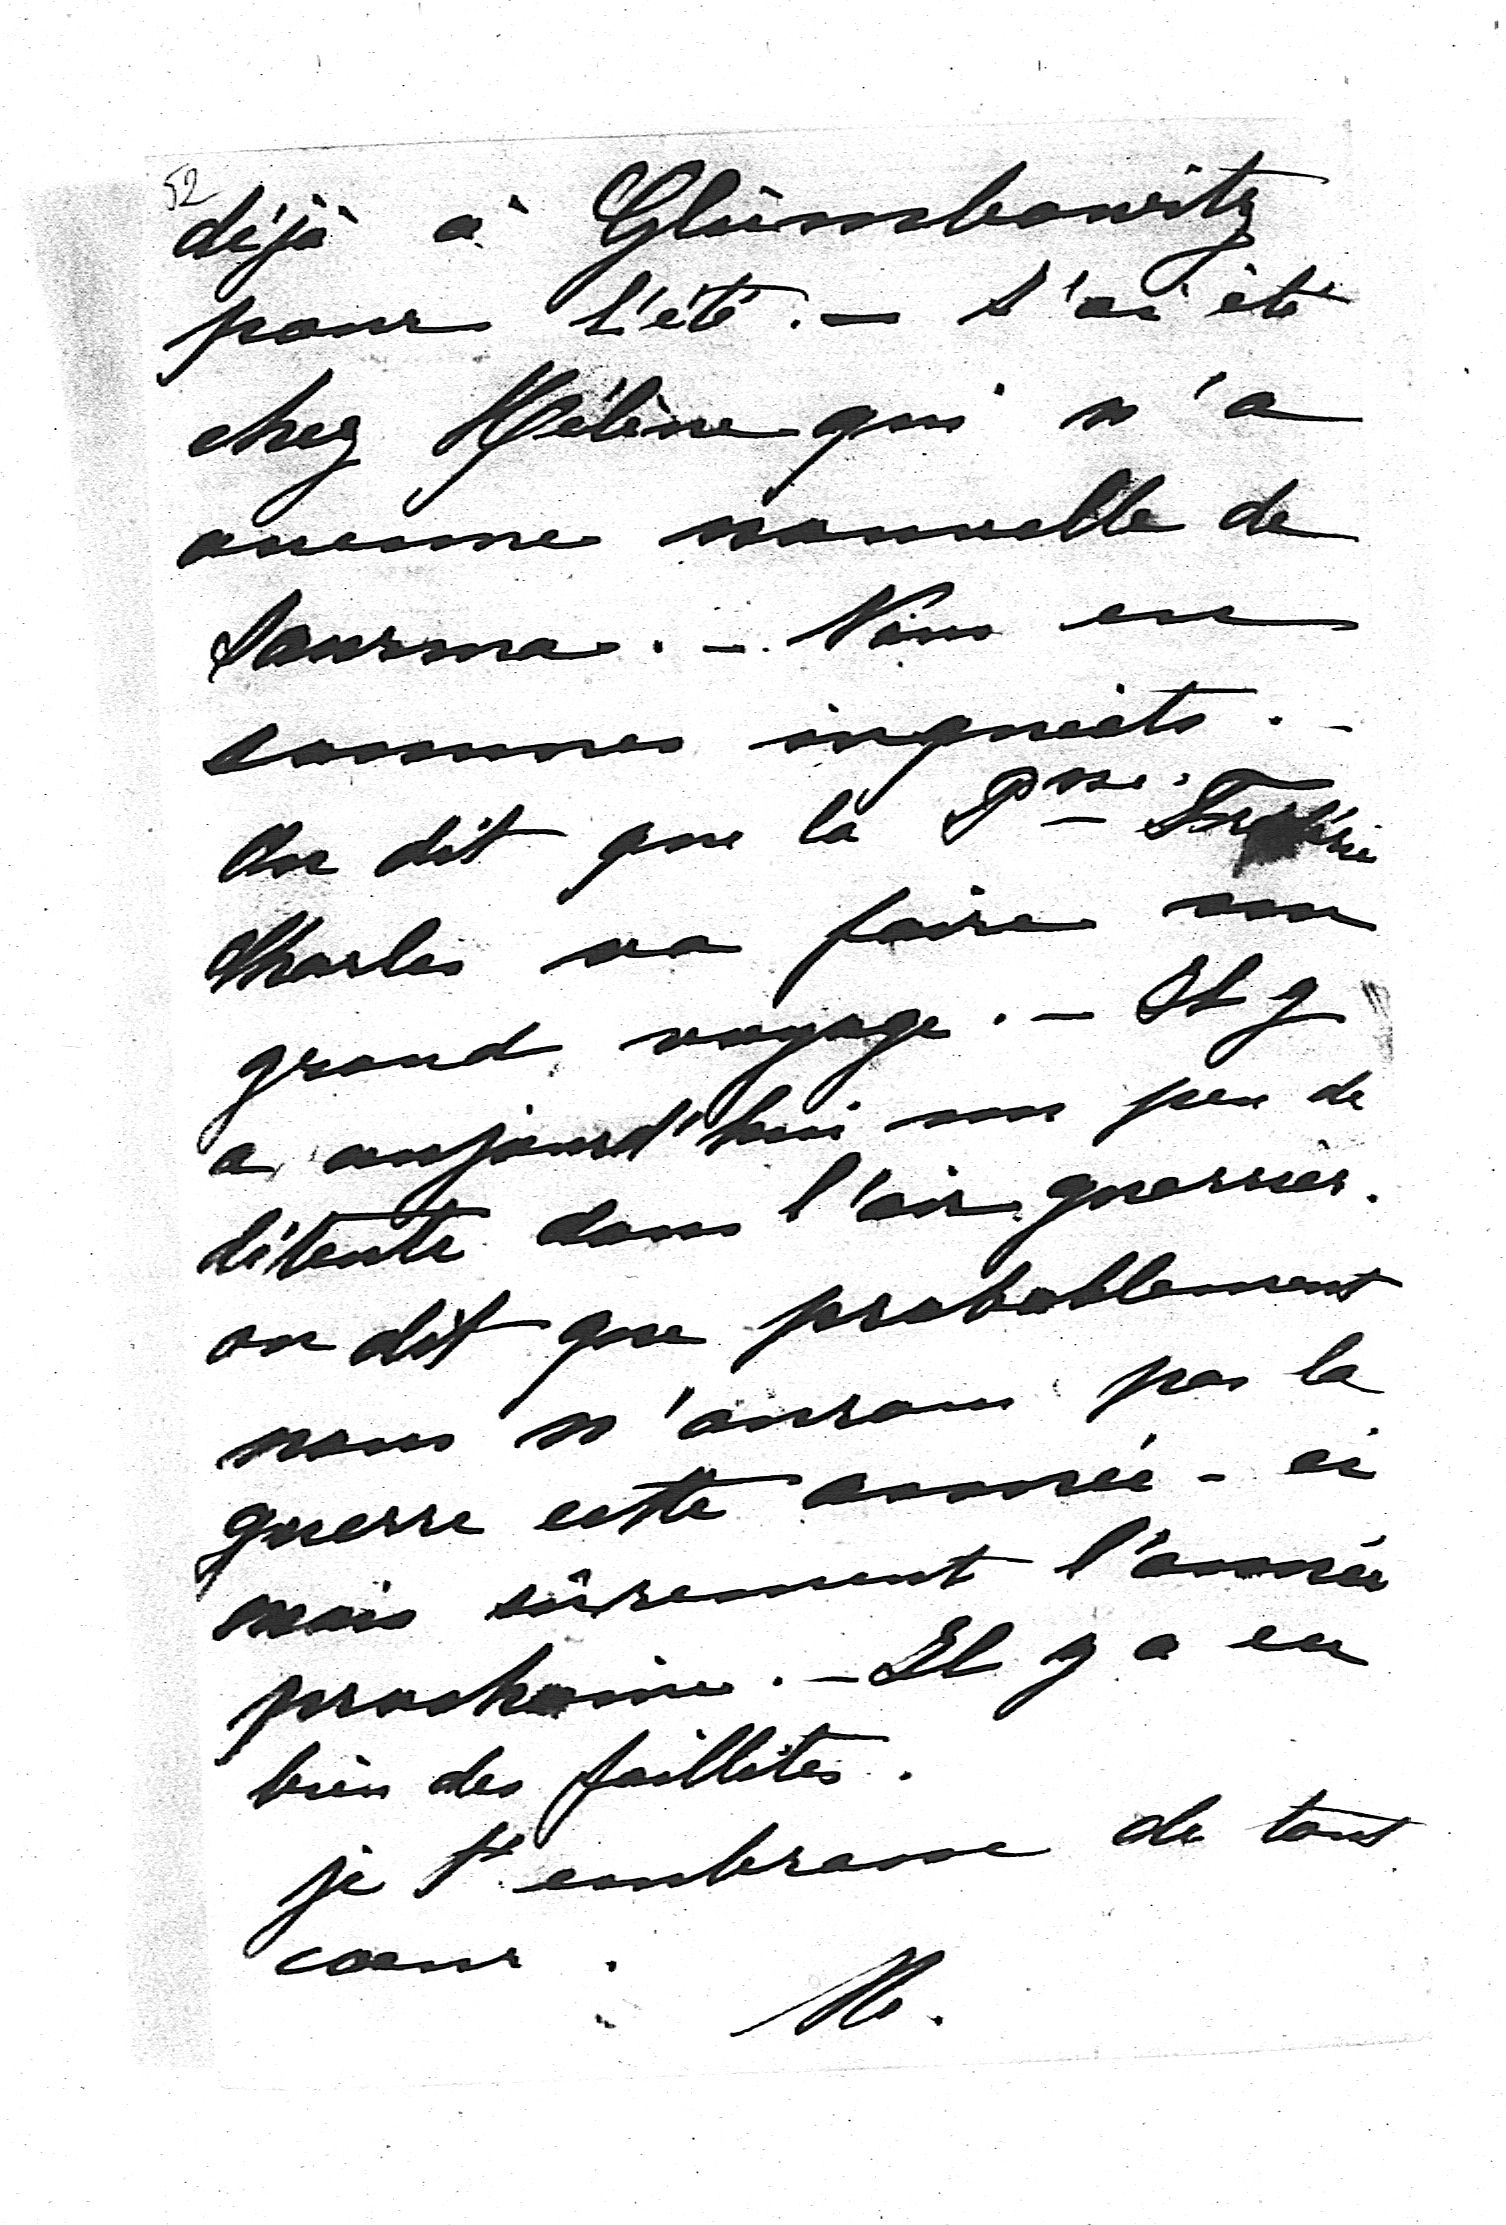 52
déjà à Glümbowitz
pour l'été. — J'ai été
chez Hélène qui n'a
aucune nouvelle de
Saurma. — Nous en
sommes inquiets. —
On dit que la Psse. Frédéric
Charles va faire un
grand voyage. — Il y
a aujourd'hui un peu de
détente dans l'air guerrier.
on dit que probablement
nous n'aurons pas la
guerre cette année - ci
mais sûrement l'année
prochaine. — Il y a eu
bien des faillites.
je t'embrasse de tout
coeur.
M.